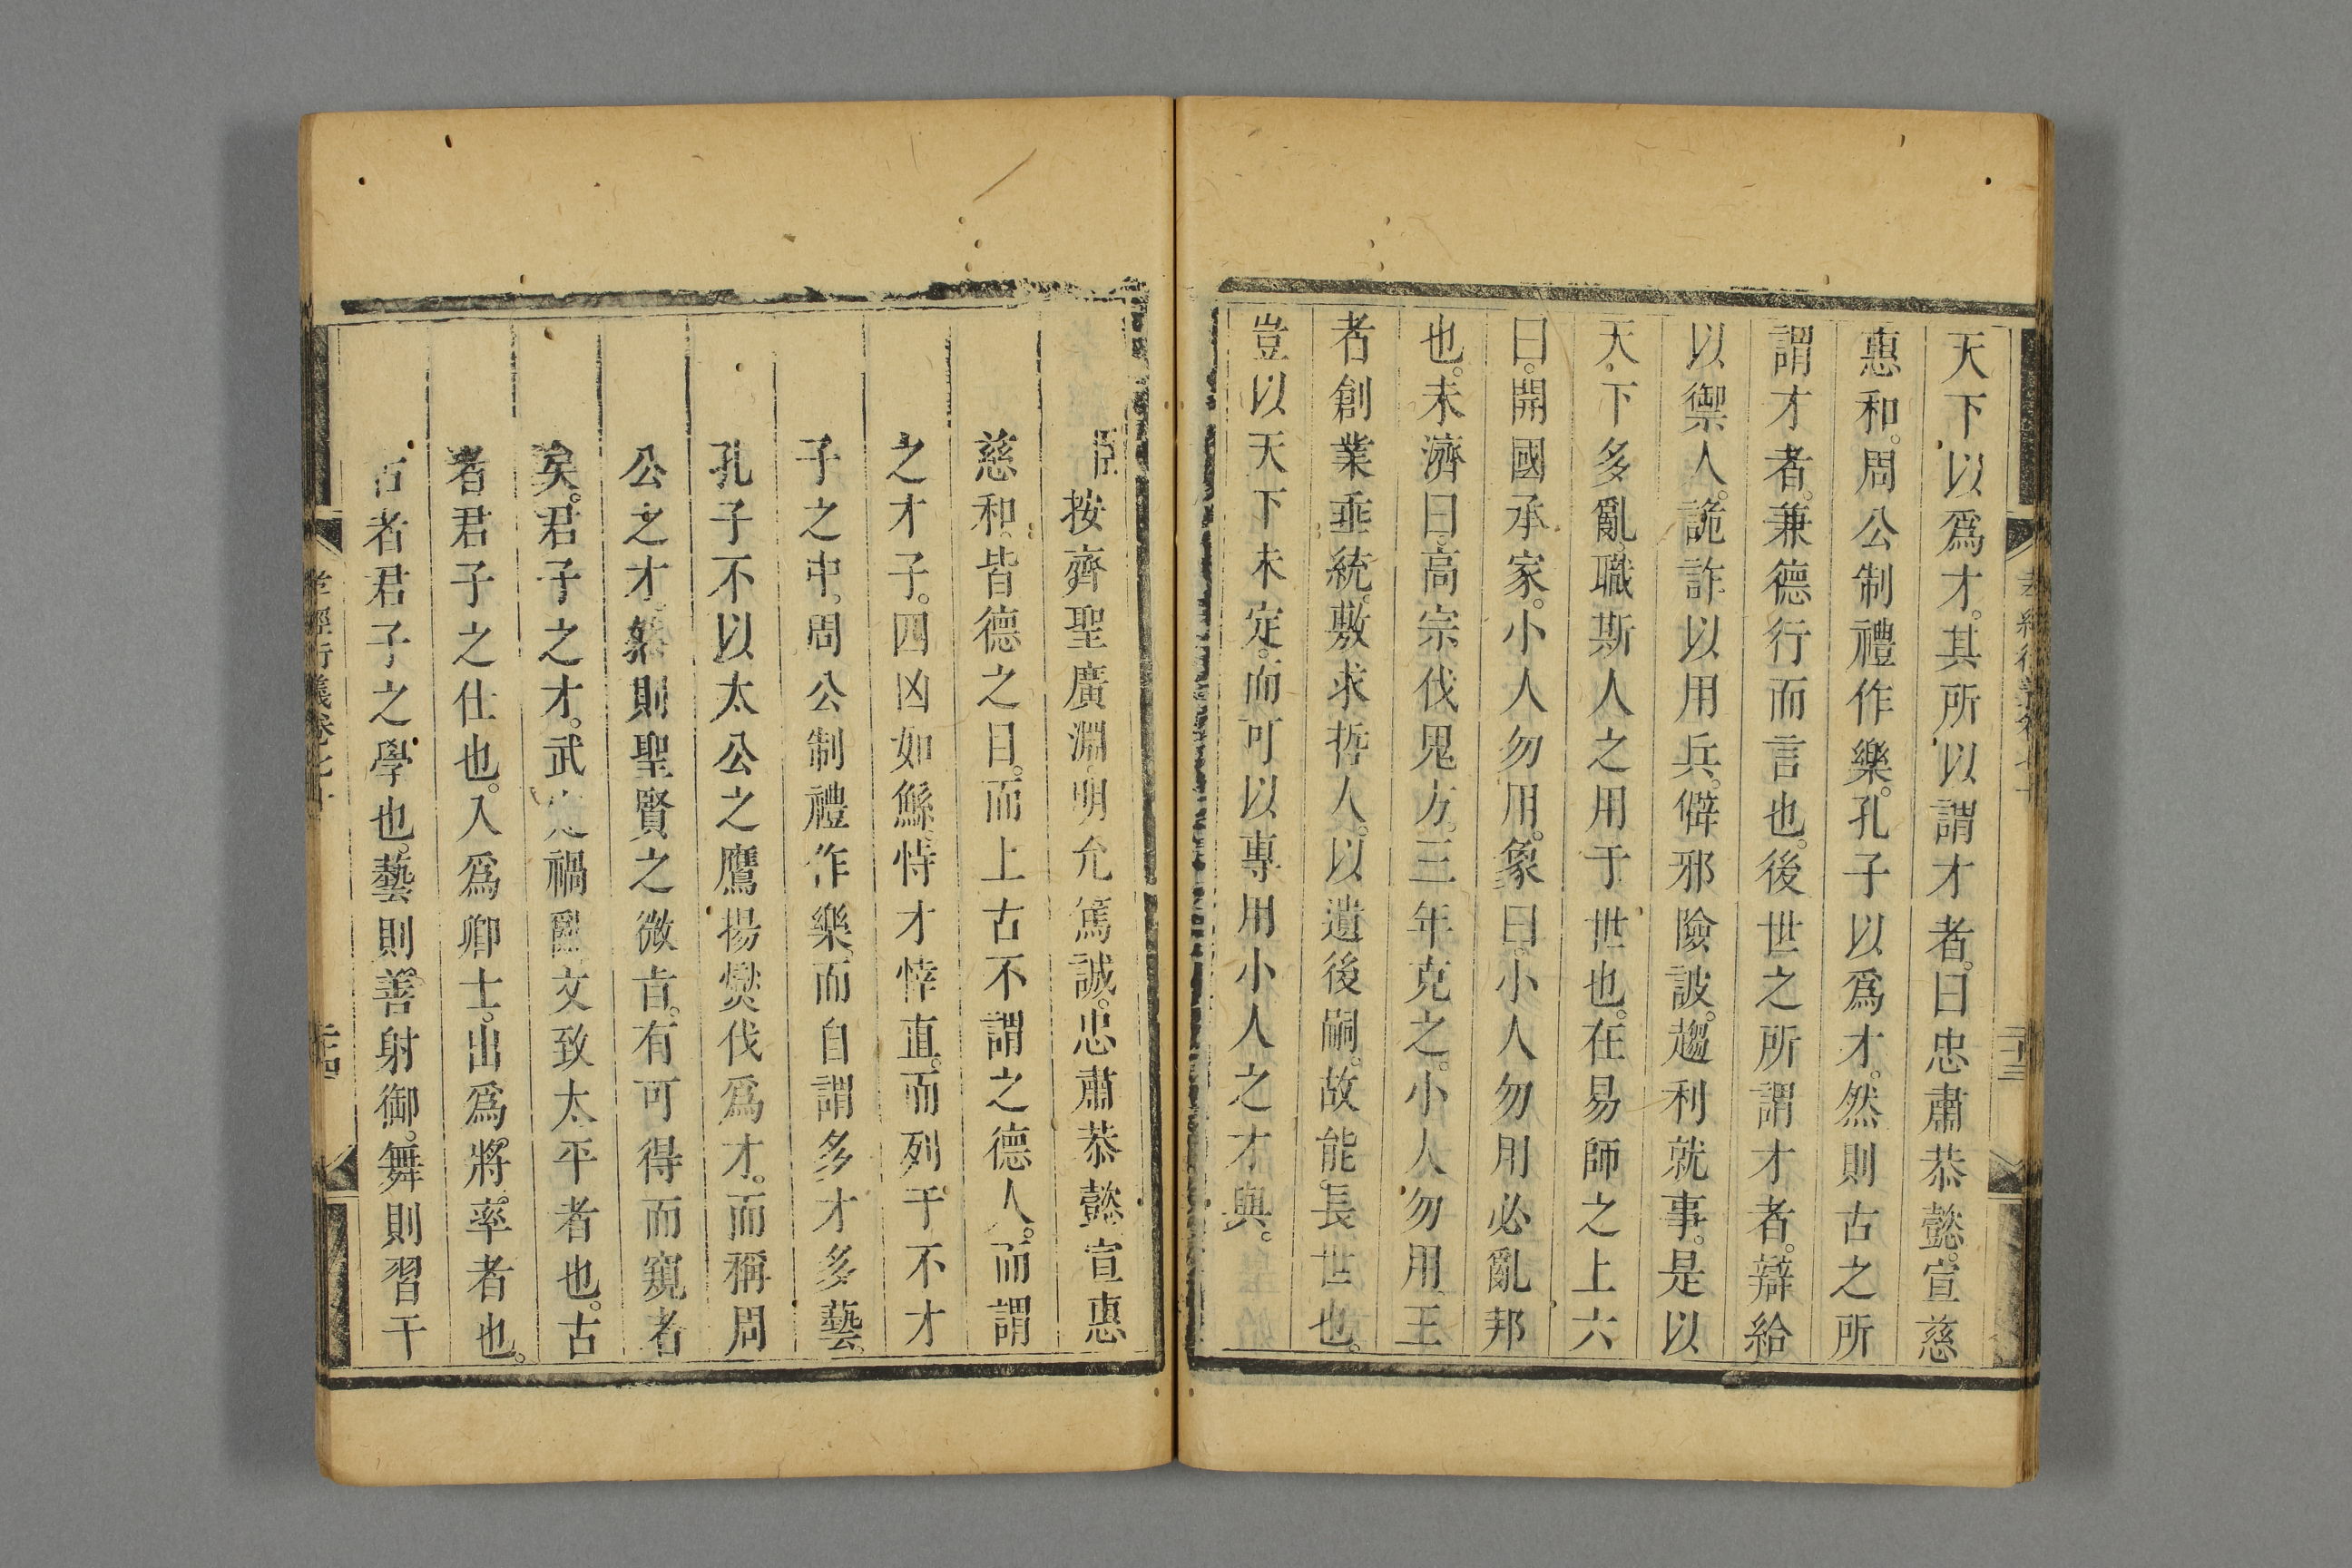 天下以爲才。其所以謂才者。曰忠肅恭懿。宣慈
惠和。周公制禮作樂。孔子以爲才。然則古之所
謂才者。兼德行而言也。後世之所謂才者。辯給
以禦人。詭詐以用兵。僻邪險詖。趨利就事。是以
天下多亂。職斯人之用于世也。在易師之上六
曰。開國承家。小人勿用。象曰。小人勿用必亂邦
也。未濟曰。高宗伐鬼方。三年克之。小人勿用。王
者創業垂統。敷求哲人。以遺後嗣。故能長世也。
豈以天下未定。而可以專用小人之才與。
臣按齊聖廣淵。明允篤誠。忠肅恭懿。宣惠
慈和。皆德之目。而上古不謂之德人。而謂
之才子。四凶如鯀恃才悻直。而列于不才
子之中。周公制禮作樂。而自謂多才多藝。
孔子不以太公之鷹揚燮伐爲才。而稱周
公之才。然則聖賢之微旨。有可得而窺者
矣。君子之才。武禍亂文致太平者也。古
者君子之仕也。入爲卿士。出爲將率者也。
古者君子之學也。藝則善射御。舞則習干
孝經衍義卷七十
二十三
孝經衍義卷七十
二十四